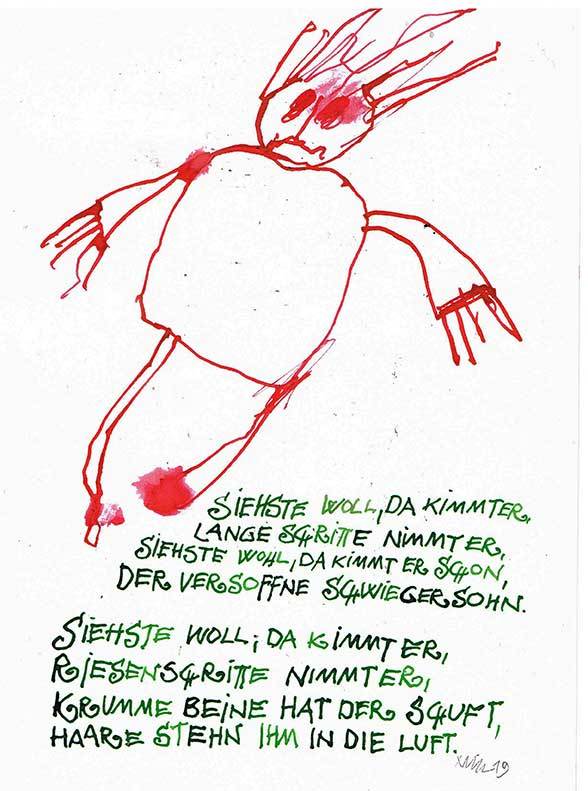 SIEHSTE WOLL, DA KIMMT ER,
LANGE SCHRITTE NIMMT ER,
SIEHSTE WOHL, DA KIMMT ER SCHON,
DER VERSOFFNE SCHWIEGERSOHN.
SIEHSTE WOLL, DA KIMMT ER,
RIESENSCHRITTE NIMMT ER,
KRUMME BEINE HAT DER SCHUFT,
HAARE STEHN IHM IN DIE LUFT.
19